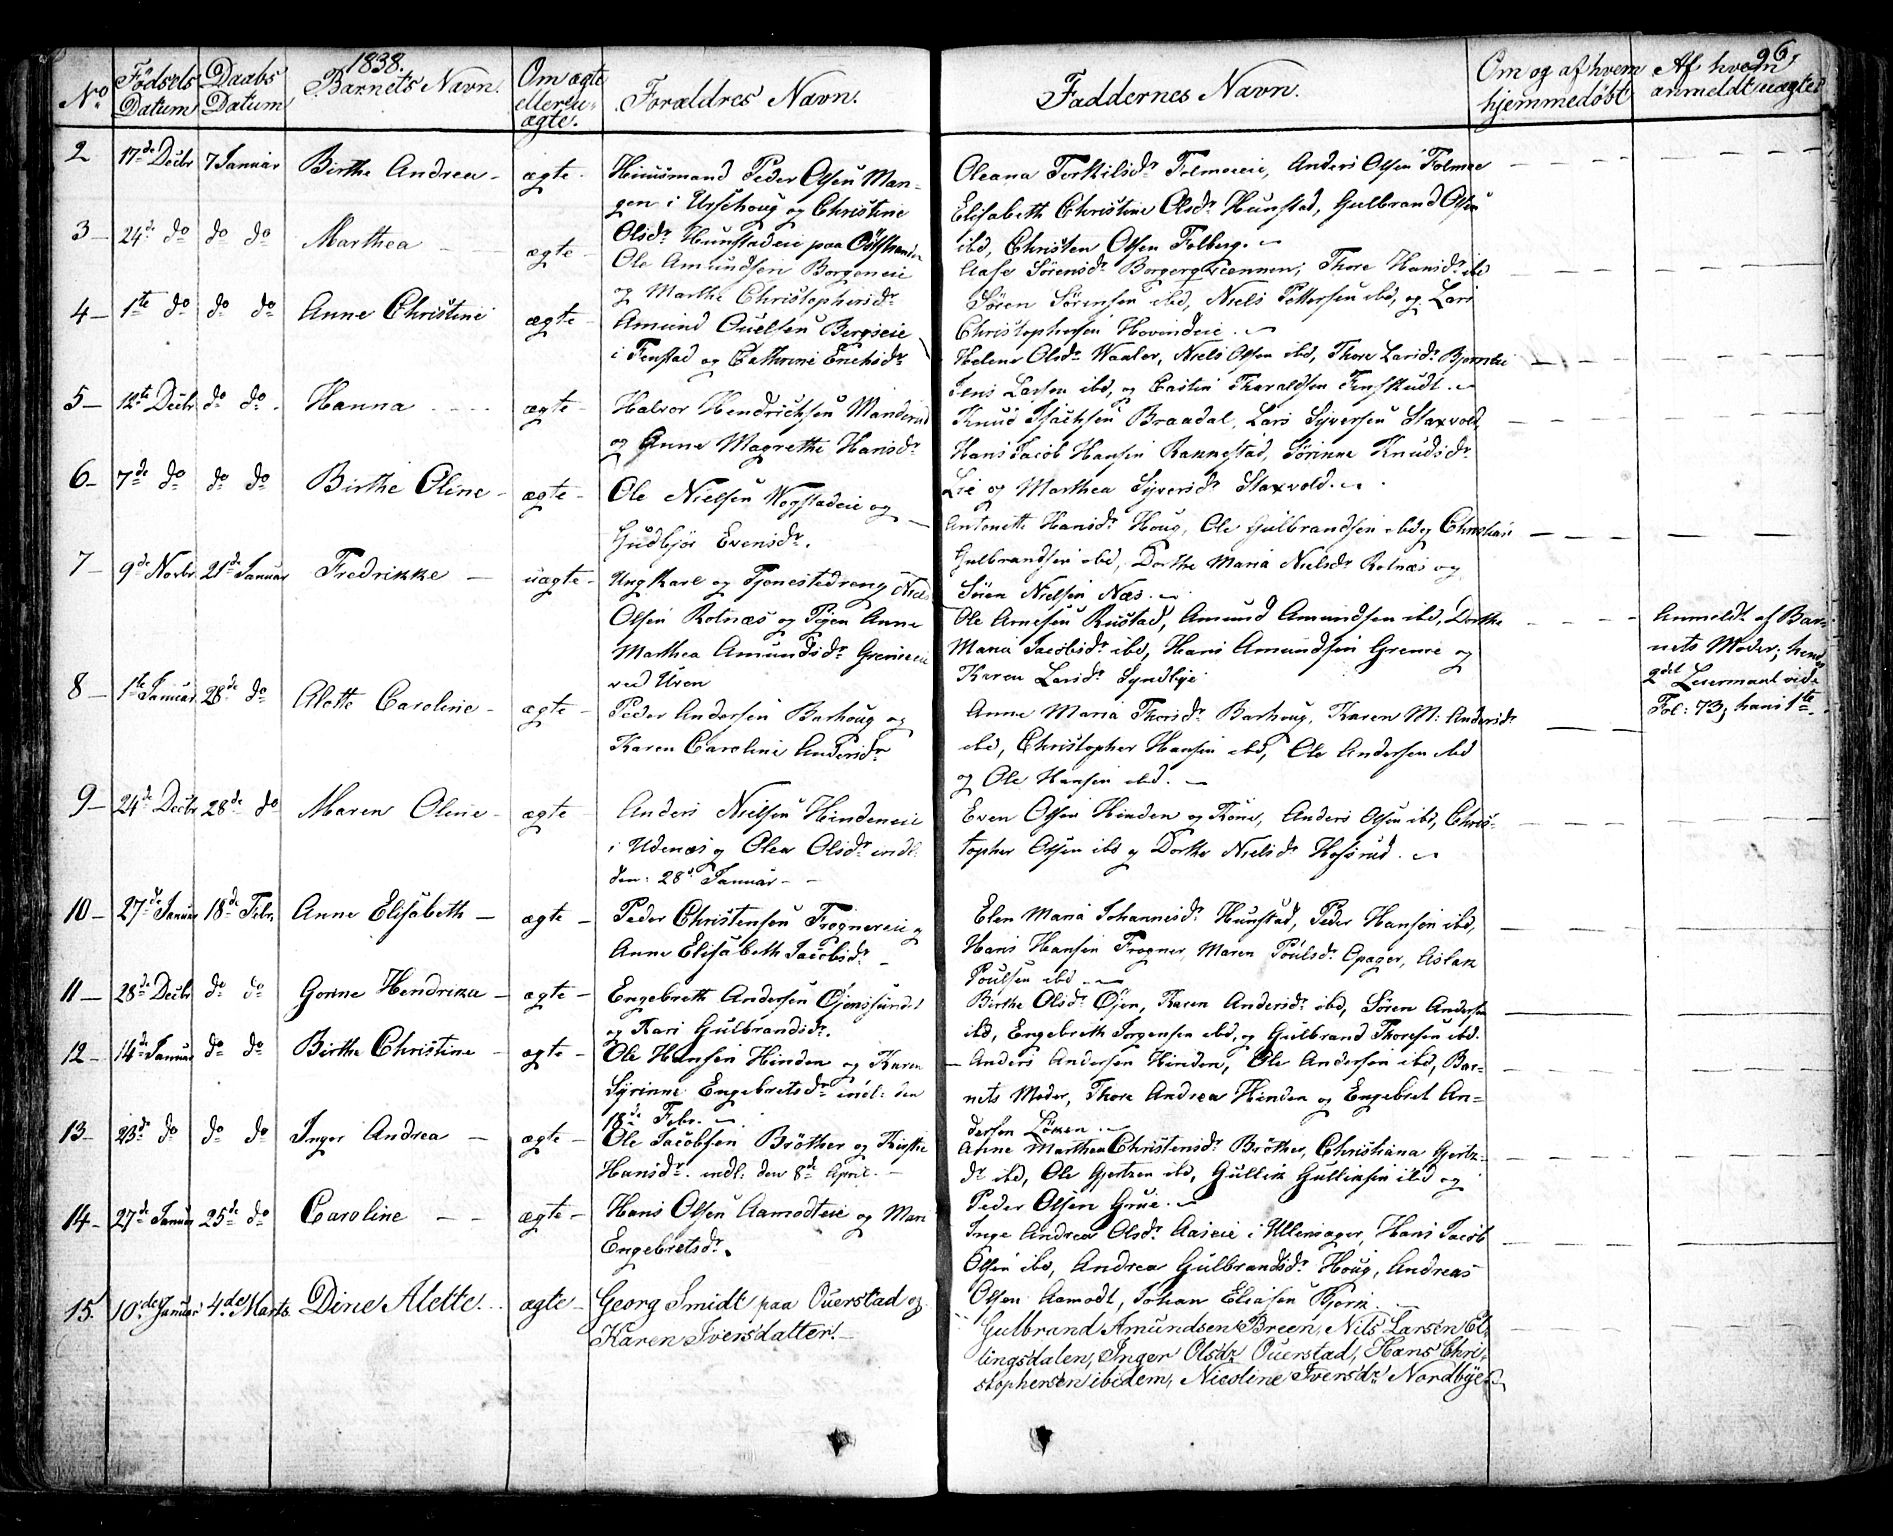 1838.
96,
No Fødsels Datum Daabs Datum Barnets Navn. Om ægte eller u- ægte. Forældres Navn. Faddernes Navn. Om og af hvem hjemmedøbt Af hvem anmeldt uægte
2 17de Decbr 7 Januar Birthe Andrea - ægte - Huusmand Peder Olsen Man-
gen i Urschoug og Christine
Olsdr Hunstadeie paa
Oleana Torkilsdr Folmoeie, Anders Olsen Folmoe
Elisabeth Christine Olsdr Hunstad, Gulbrand Olsen
ibd, Christen Olsen Folberg.
3 - 24de do do do Marthea ægte - Ole Amundsen Borgeneie
og Marthe Christophersdr
Aase Sørensdr Borgerqvænnen, Thore Hansdr ibd
Søren Sørensen ibd, Niels Pettersen ibd, og Lars
Christophersen Hovindeie.
4 - 1te do do do Anne Christine ægte - Amund Ouelsen Bergseie
i Fenstad og Cathrine Erichsdr
Helene Olsdr Waaler, Niels Olsen ibd, Thore Larsdr
Jens Larsen ibd, og Casten Tharaldsen
5 - 12te Decbr do do. Hanna ægte - Halvor Hendrichsen Manderud
og Anne Magrethe Hansdr
Knud Braadal, Lars Syversen Staxvold
Hans Jacob Hansen Rannestad, Sørinne Knudsdr
Lie og Marthea Syversdr Staxvold.
6 - 7de do do do Birthe Oline - ægte - Ole Nielsen Wogstadeie og
Gudbjør Evensdr.
Antonette Hansdr Houg, Ole Gulbrandsen ibd og Christian
Gulbrandsen ibd, Dorthe Maria Nielsdr Rotnæs og
Søren Nielsen Næs.
7 - 9de Novbr 21de Januar Fredrikke - uægte - Ungkarl og Tjenestedreng Niels
Olsen Rotnæs og Pigen Anne
Marthea Amundsdr Grenieeie
ved Uren
Ole Arnesen Rustad, Amund Amundsen ibd, Dorthe
Maria Jacobsdr ibd, Hans Amundsen Grenie og
Karen Larsdr Syndbye
Anmeldt af Bar-
nets Moder; hendes
2det Leiermaal vide
Fol: 73, hans 1te.
8 - 1te Januar 28de do Alette Caroline - ægte - Peder Andersen Barhoug og
Karen Caroline Andersdr
Anne Maria Thorsdr Barhoug, Karen M: Andersdr
ibd, Christopher Hansen ibd, Ole Andersen ibd
og Ole Hansen ibd. -
9 - 24de Decbr 28de do Maren Oline - ægte - Anders Nielsen Hindeneie
i Udenæs og Olea Olsdr indl.
den: 28de Januar - -
Even Olsen Hinden og Kone, Anders Olsen ibd, Chris-
topher Olsen ibd og Dorthe Nielsdr Hofsrud.
10 - 27de Januar 18de Febr. Anne Elisabeth - ægte - Peder Christensen Frognereie og
Anne Elisabeth Jacobsdr -
Elen Maria Johannesdr Hunstad, Peder Hansen ibd,
Hans Hansen Frogner, Maren Poulsdr Opager, Aslak
Poulsen ibd.
11 - 28de Decbr do do Gorine Hendrika - ægte - Engebreth Andersen Øjenssund
og Kari Gulbrandsdr.
Birthe Olsdr Øjen, Karen Andersdr ibd, Søren Andersen
ibd, Engebreth Jorgensen ibd, og Gulbrand Thoresen ibd.
12 - 14de Januar do do Birthe Christine - ægte - Ole Hansen Hinden og Karen
Syrinne Engebretsdr indl: den
18de Febr.
- Anders Andersen Hinden, Ole Andersen ibd, Bar-
nets Moder, Thore Andrea Hinden og Engebret An-
dersen Løken.
13 - 23de do do do Inger Andrea - ægte - Ole Jacobsen Brøther og Kirstie
Hansdr. indl: den 8de April. -
Anne Marthea Christensdr Brøther, Christiana Gjertz-
dr ibd, Ole Gjertzen ibd, Gullik Gulliksen ibd og
Peder Olsen Grue.
14 - 27de Januar 25de do Caroline - - ægte - Hans Olsen Aamodteie og Mari
Engebretsdr.
Inge Andrea Olsdr Aaseie i Ullensager, Hans Jacob
Olsen ibd, Andrea Gulbrandsdr Houg, Andreas
Olsen Aamodt, Johan Eliasen Bjørk.
15. 10de Januar 4de Marts Dine Alette. ægte - Georg Smidt paa Ouerstad og
Karen Iversdatter. -
Gulbrand Amundsen Breen, Nils Larsen El-
lingsdalen, Inger Olsdr Ouerstad, Hans Chri-
stophersen ibidem, Nicoline Iversdr Nordbye.